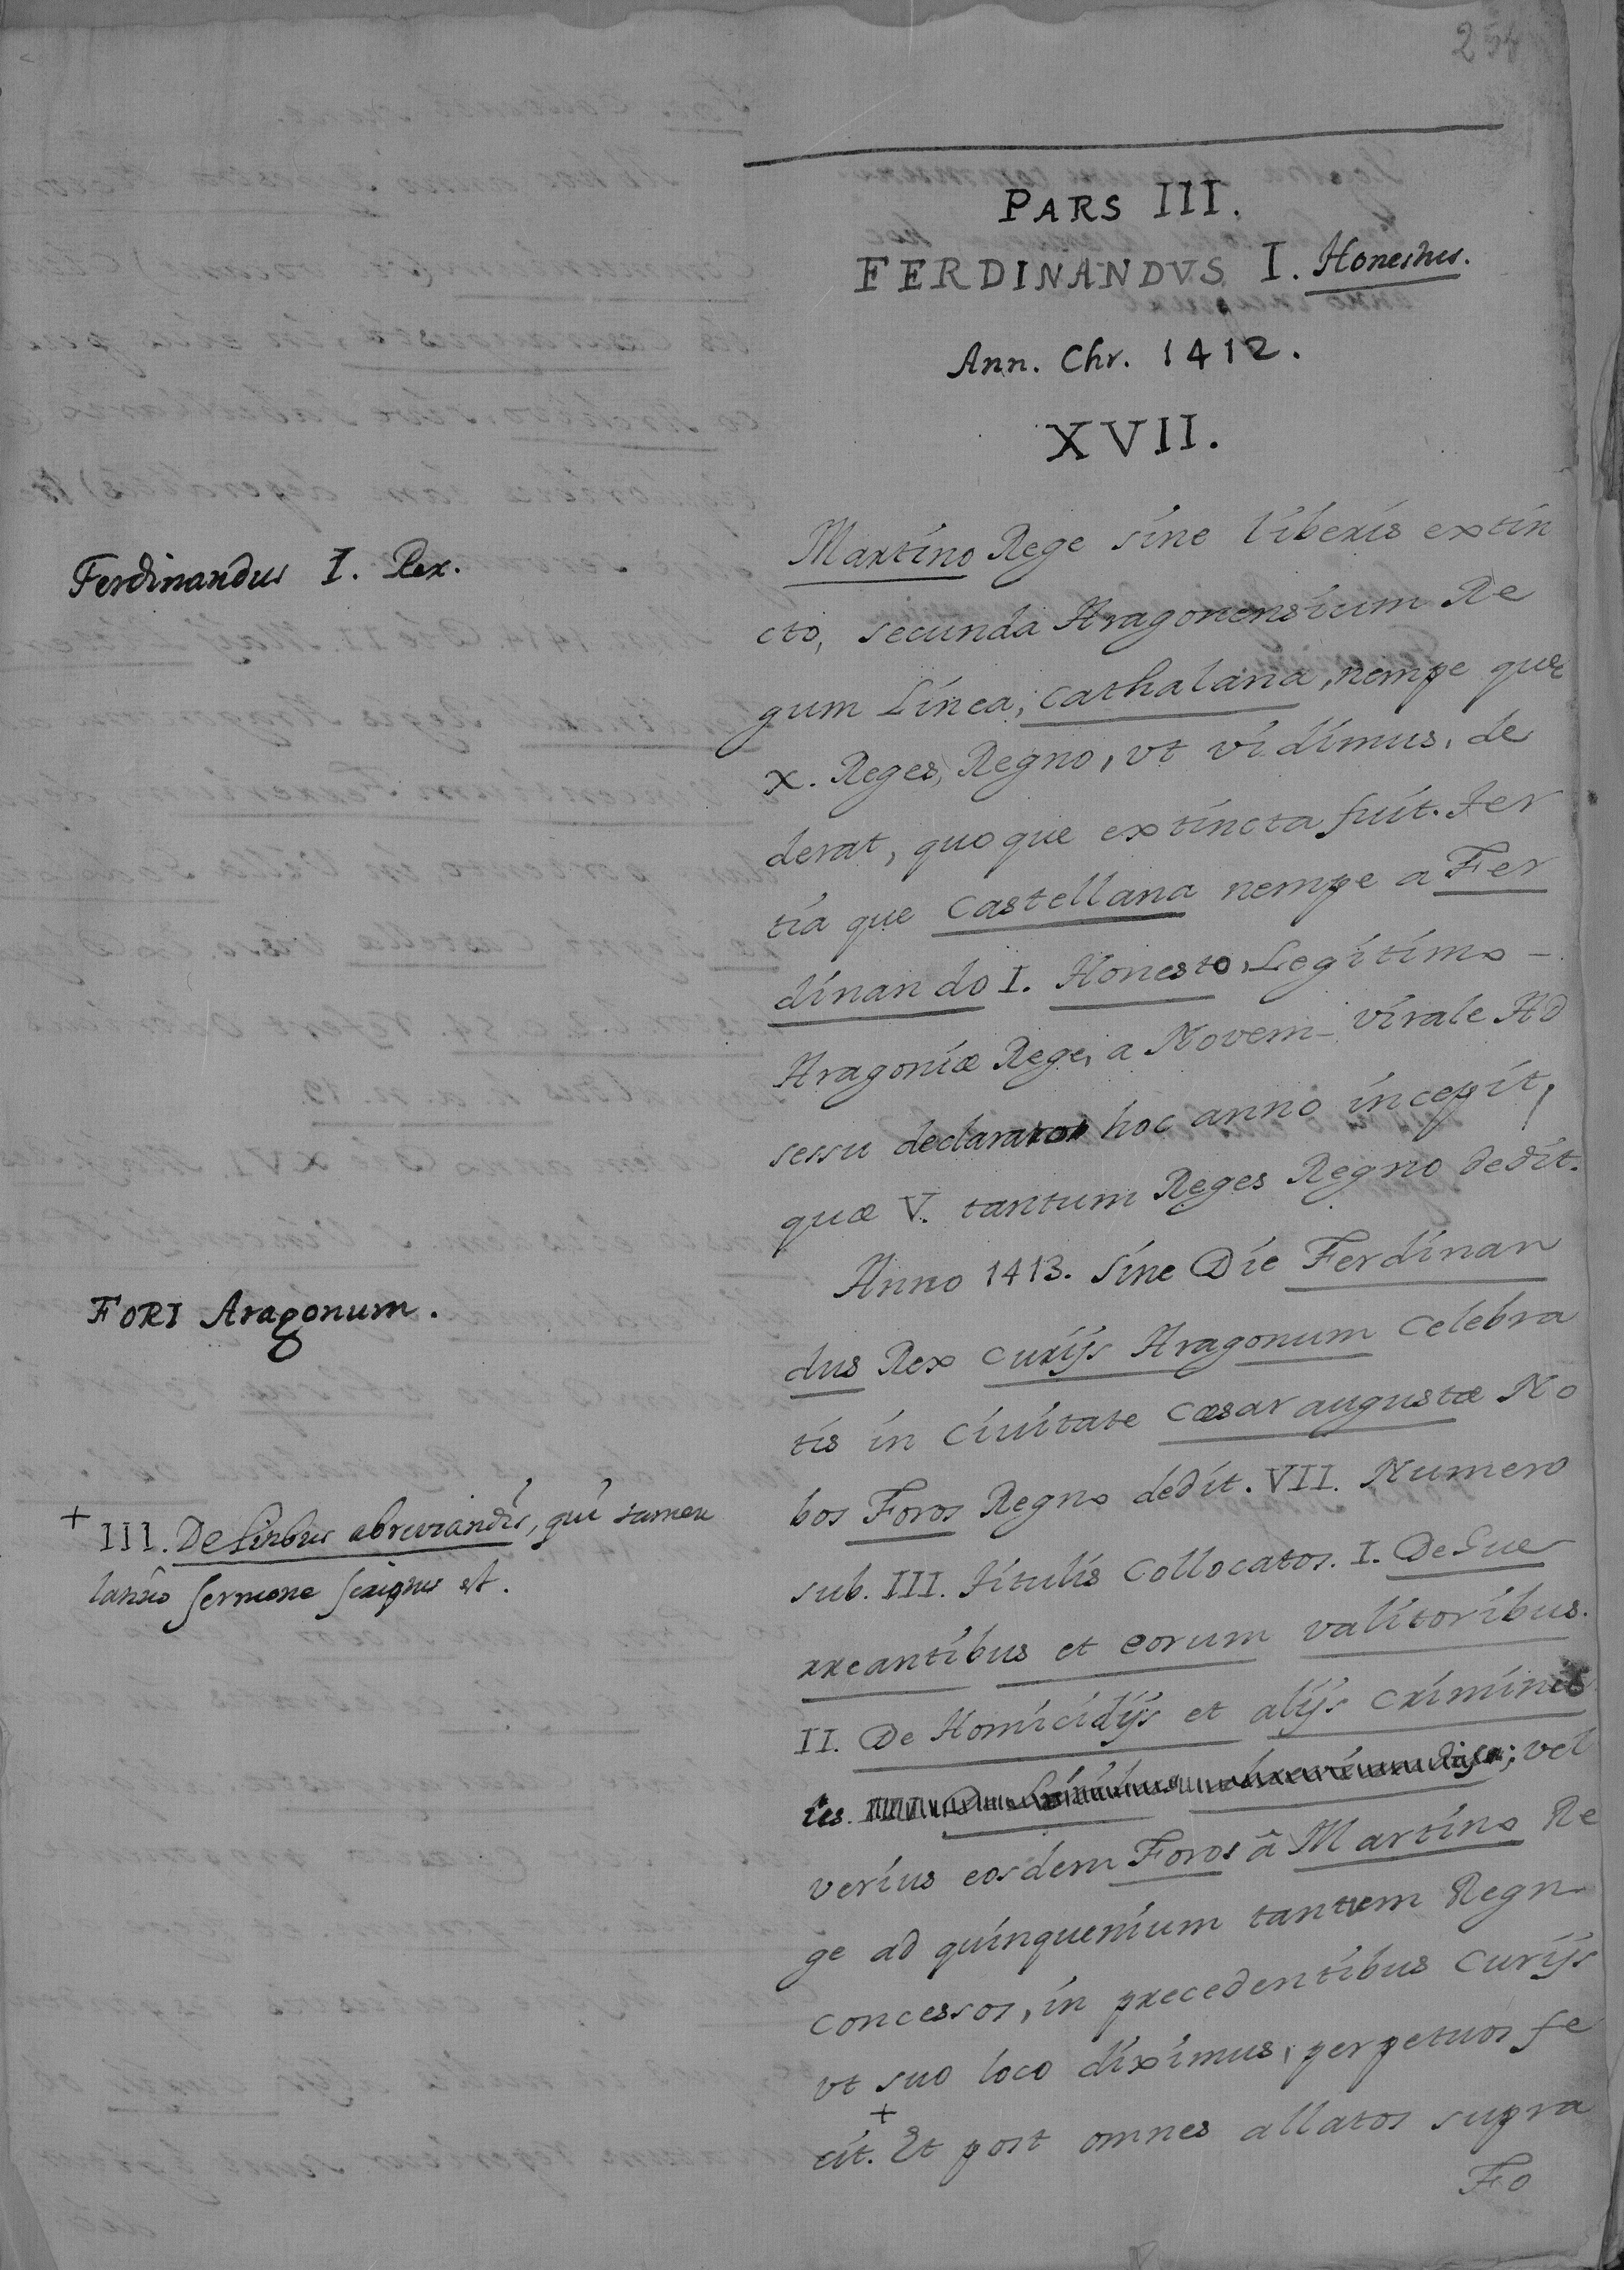 PARS III.
FERDINANDVS I. Honestus.
Ann. Chr. 1412.
XVII.
Ferdinandus I. Rex.
Martino Rege sine liberis extin
cto, secunda Aragonensium Re
gum Linea, Cathalana, nempe quæ
X. Reges, Regno, vt vidimus, de
derat, quoque extincta fuit. Ter
tia que Castellana nempe a Fer
dinando I. Honesto, Legitimo -
Aragoniæ Rege, a Novem-virale Ad
sessu declarato hoc anno incepit,
quæ V. tantum Reges Regno dedit.
Anno 1413. sine Die Ferdinan
dus Rex Curijs Aragonum Celebra
FORI Aragonum.
tis in Ciuitate Cæsaraugustæ No
bos Foros Regno dedit. VII. Numero
sub. III. Titulis Collocatos. I. De Gue
rreantibus et eorum valitoribus.
II. De Homicidijs et alijs Crimini
; vel
verius eosdem Foros â Martino Re
ge ad quinquenium tantum Regno
concessos, in precedentibus Curijs
vt suo loco diximus, perpetuos fe
cit. + Et post omnes allatos supra
Fo
+ III. De litibus abreviandis, qui tamen
latino sermone est.